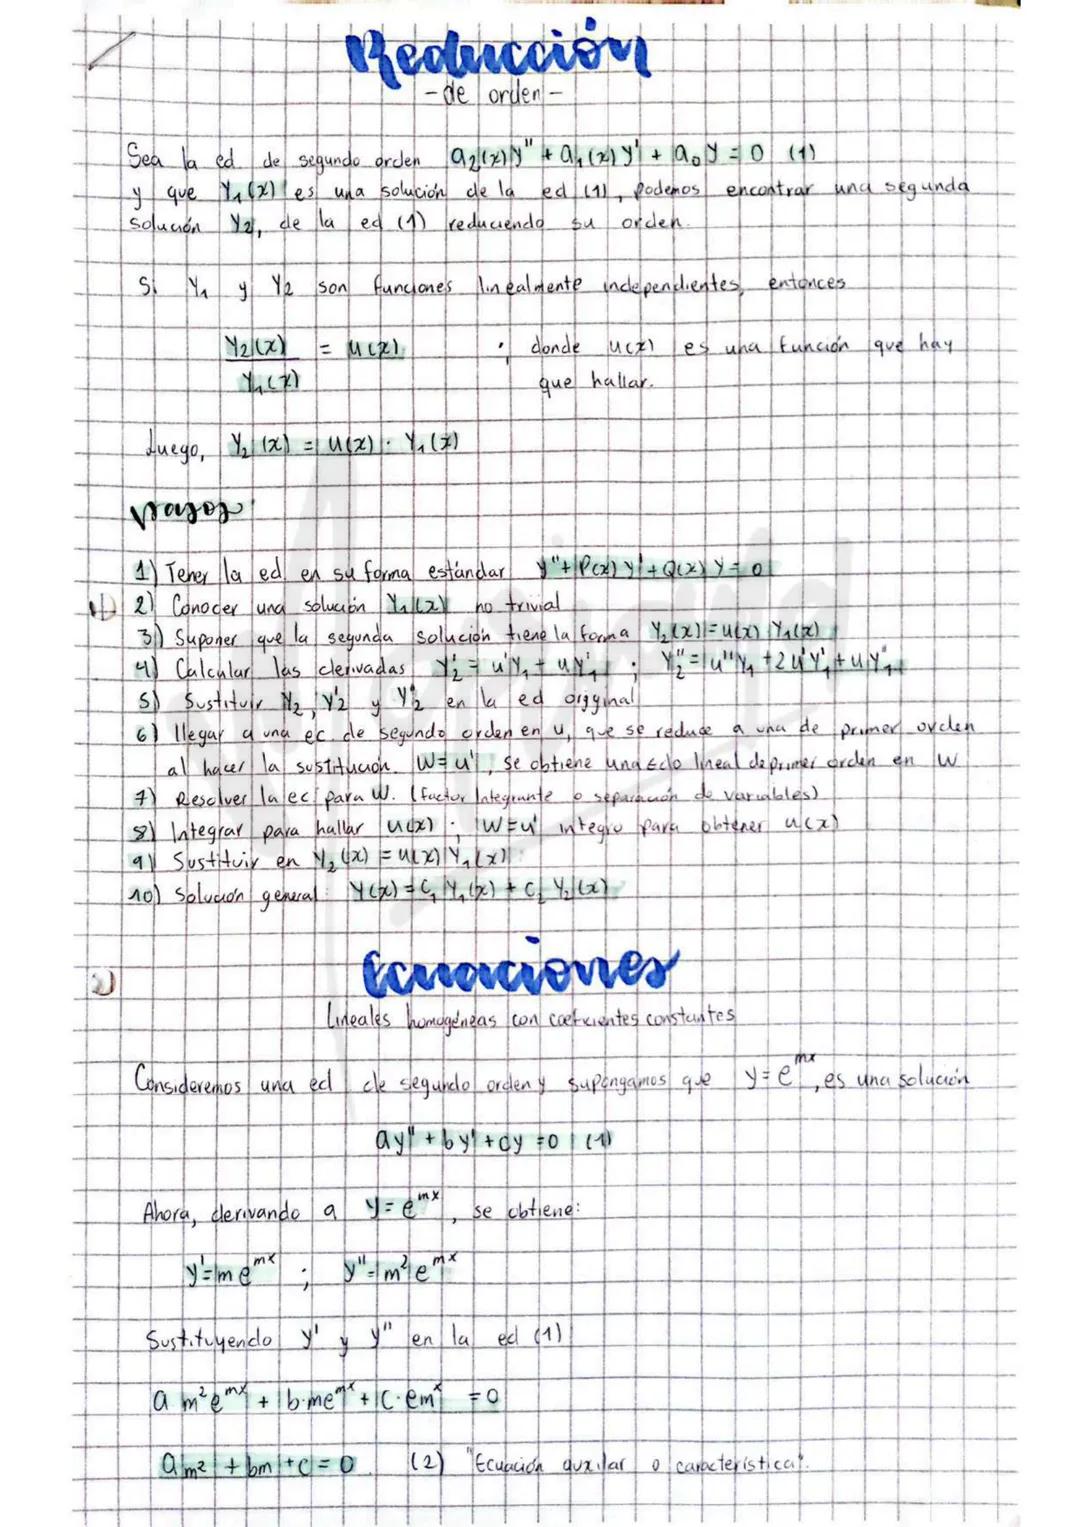 Reducción
- de orden -
Sea la ed. de segundo orden a₂(x)y" + a₁(x)y' + a₀y = 0 (1)
y que Y₁(x) es una solución de la ed (1), podemos encontrar una segunda
solución Y₂, de la ed (1) reduciendo su orden.
Si Y₁ y Y₂ son funciones linealmente independientes, entonces
Y₂(x) / Y₁(x) = u(x) ; donde u(x) es una función que hay
que hallar.
Luego, Y₂(x) = u(x) · Y₁(x)
Pasos:
1) Tener la ed. en su forma estándar y" + P(x)y' + Q(x)y = 0
1) 2) Conocer una solución Y₁(x) no trivial
3) Suponer que la segunda solución tiene la forma Y₂(x) = u(x) Y₁(x)
4) Calcular las derivadas Y₂' = u'Y₁ + uY₁' ; Y₂" = u"Y₁ + 2u'Y₁' + uY₁"
5) Sustituir Y₂, Y'₂ y Y"₂ en la ed original
6) llegar a una ec. de segundo orden en u, que se reduce a una de primer orden
al hacer la sustitución. W = u', se obtiene una Edo lineal de primer orden en W
7) Resolver la ec para W. (factor Integrante o separación de variables)
8) Integrar para hallar u(x) ; W = u' integro para obtener u(x)
9) Sustituir en Y₂(x) = u(x) Y₁(x)
10) Solución general: Y(x) = C₁ Y₁(x) + C₂ Y₂(x)
2)
Ecuaciones
Lineales homogéneas con coeficientes constantes
Consideremos una ed de segundo orden y supongamos que y = eᵐˣ, es una solución
ay" + by' + cy = 0 (1)
Ahora, derivando a y = eᵐˣ, se obtiene:
y' = m eᵐˣ ; y" = m² eᵐˣ
Sustituyendo y' y y" en la ed (1)
a m²eᵐˣ + b·meᵐˣ + c·emˣ = 0
am² + bm + c = 0 (2) "Ecuación auxilar o característica".